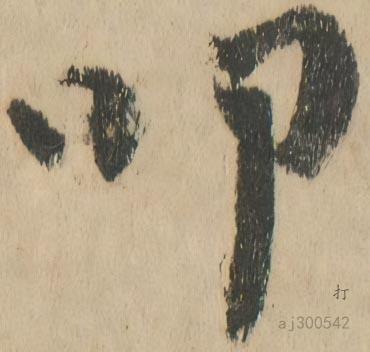 叩
打
aj300542